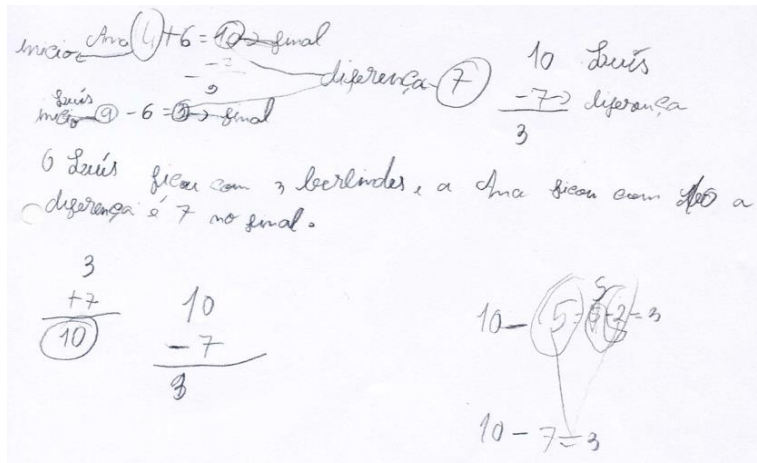 inicio Ana 4 + 6 = 10 → final
diferença 7
Luís
inicio 9 - 6 = 3 → final
10 Luís
-7 → diferença
3
O Luís ficou com 3 berlindes, a Ana ficou com 10 a
diferença é 7 no final.
3
+7
10
10
-7
3
10 - 5 = 5 - 2 = 3
5
10 - 7 = 3